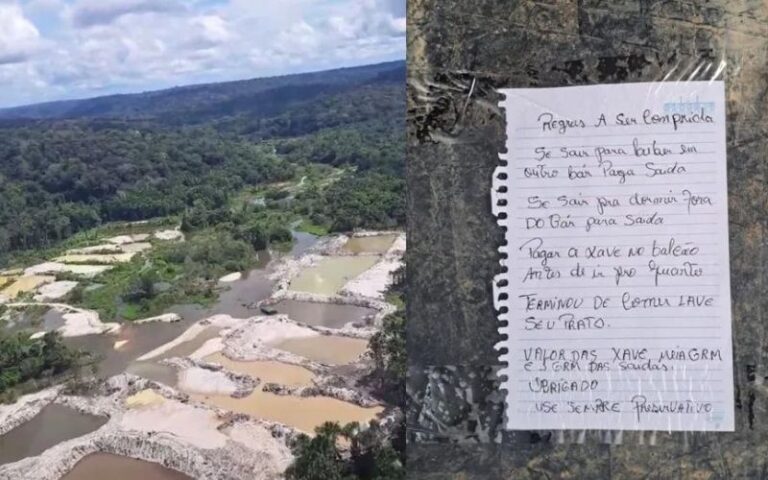 Regras A Ser Comprida
Se sair para beber em
outro bar Paga Saida
Se sair pra dormir fora
DO Bar para Saida
Pagar a xave no balcão
Antes de ir pro quarto
TERMINOU DE COMER LAVE
SEU PRATO.
VALOR DAS XAVE MEIA GRM
E GRM DAS Saidas.
OBRIGADO
USE SEMPRE PRESERVATIVO